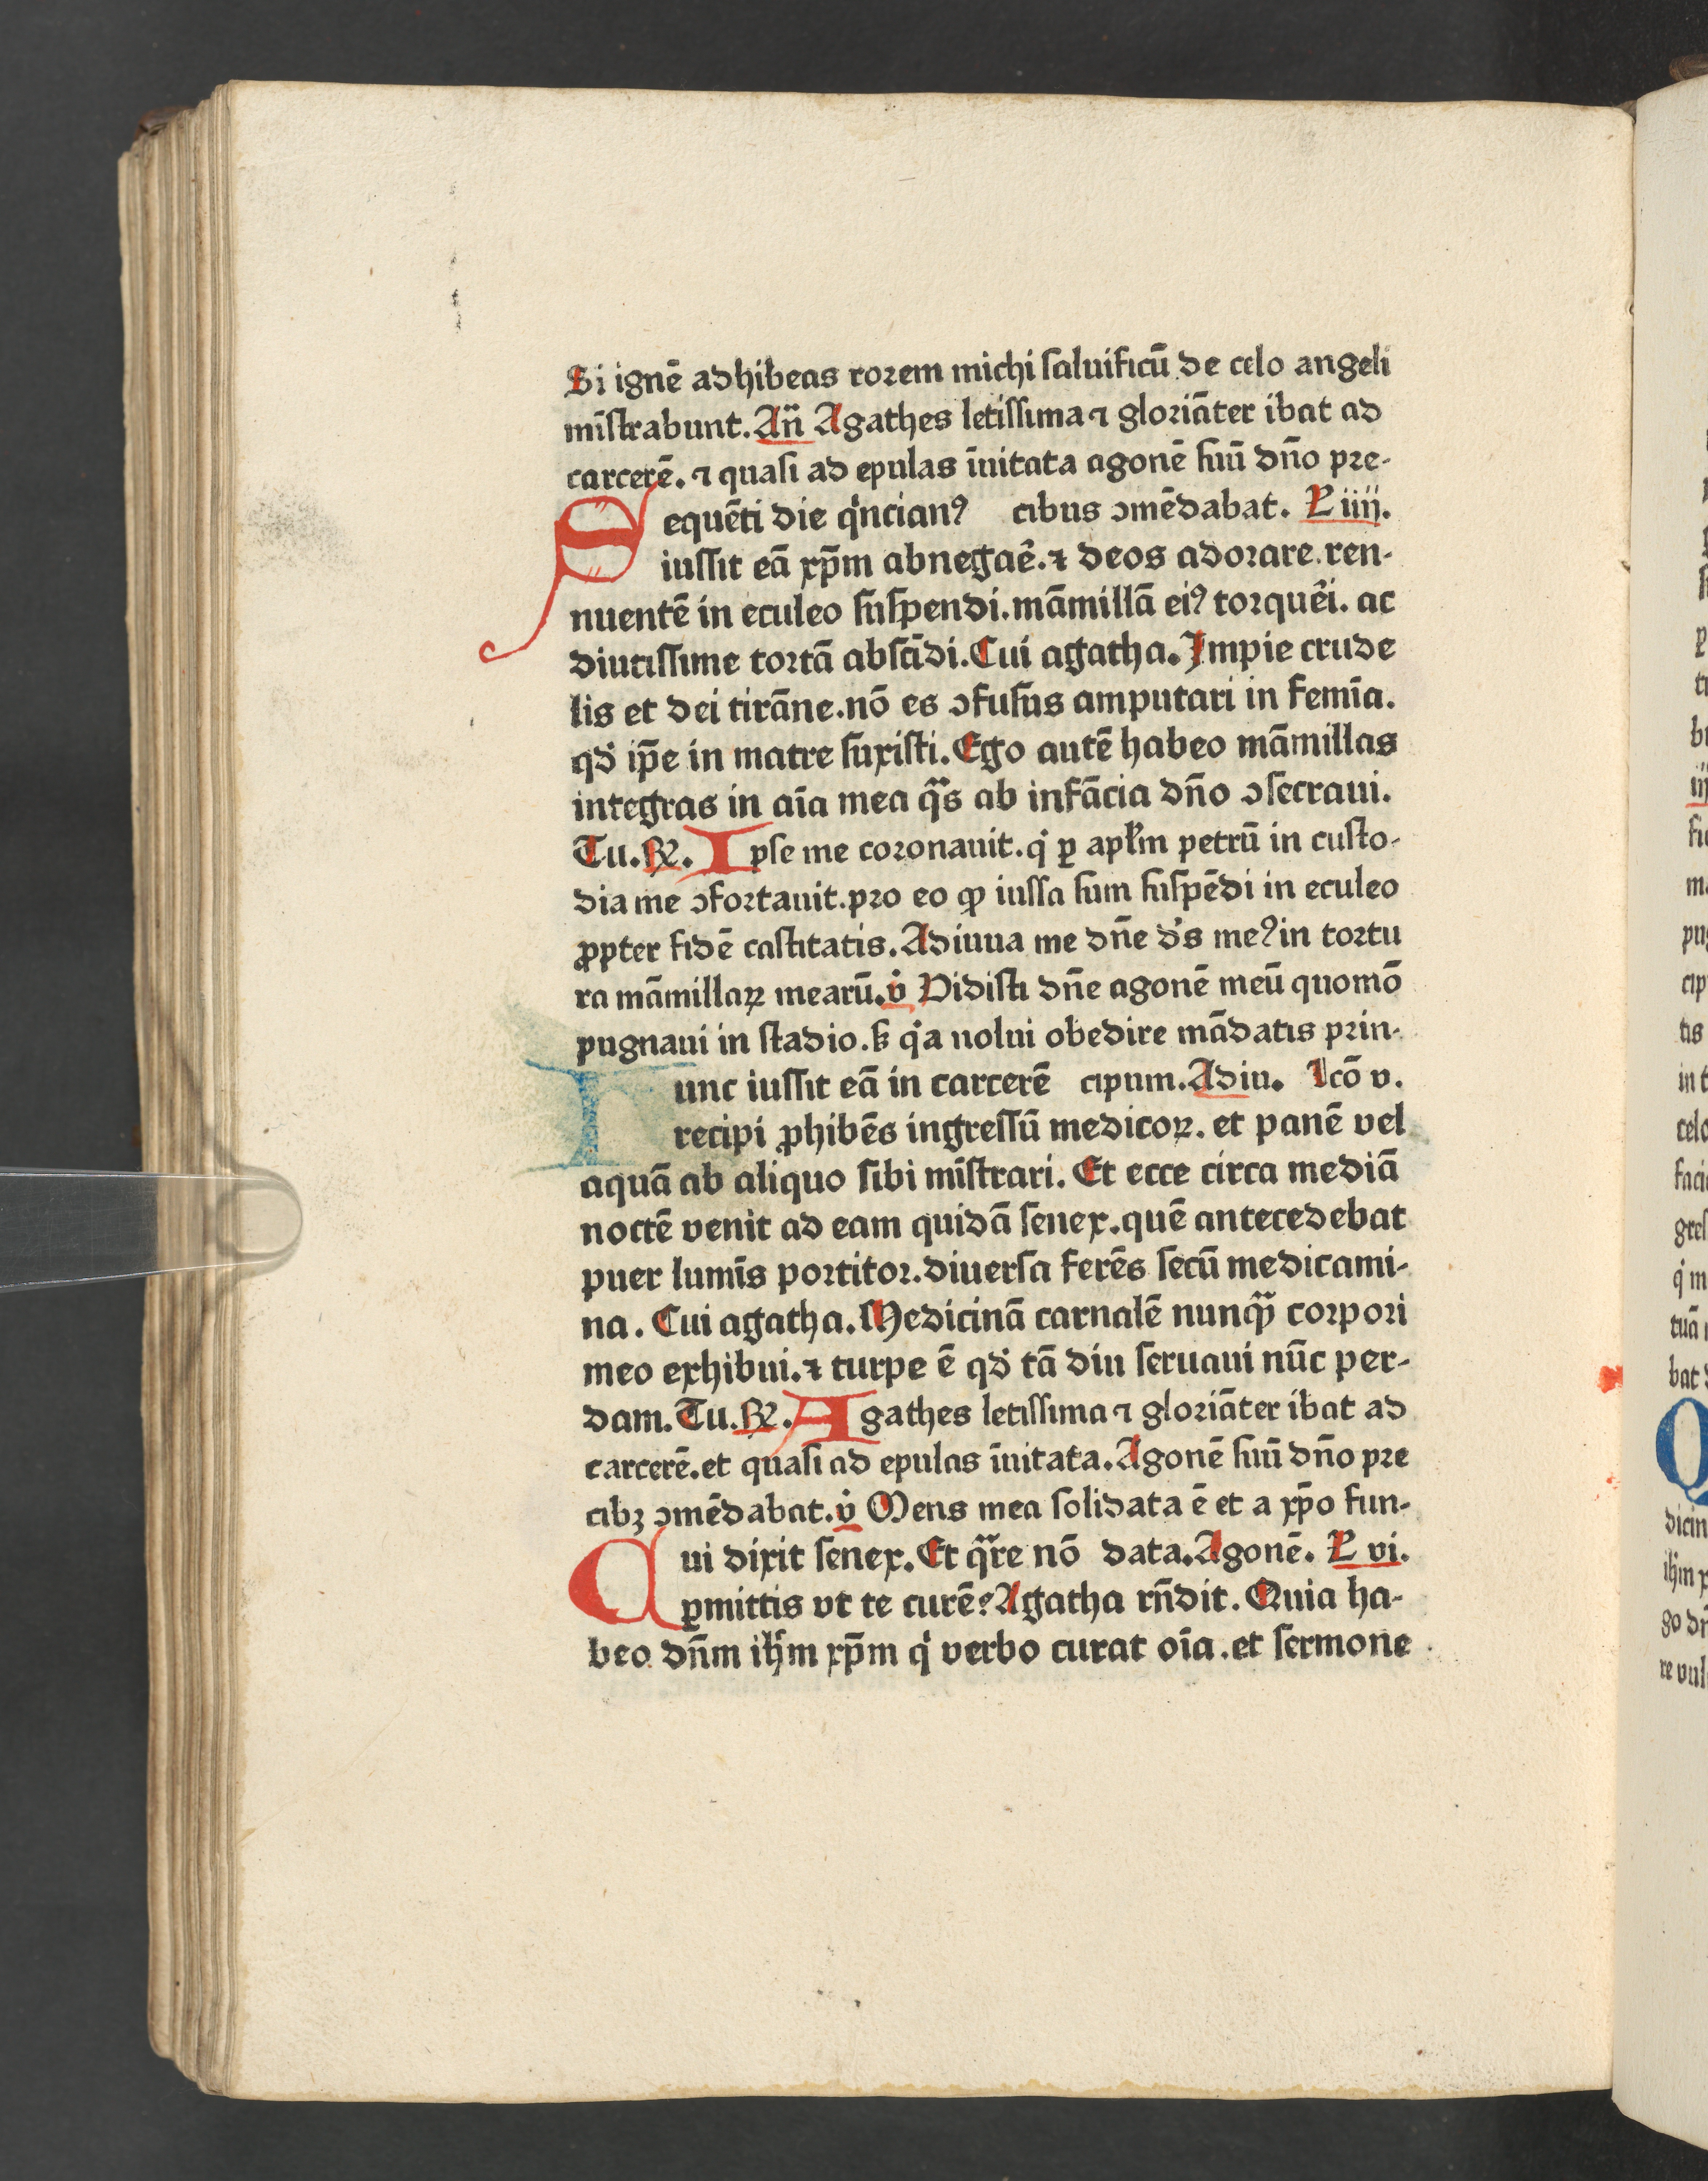 Si ignē adhibeas rorem michi saluificū de celo angeli
mīstrabunt. An̄ Agathes letissima ⁊ gloriāter ibat ad
carcerē. ⁊ quasi ad epulas īuitata agonē suū dn̄o pre-
Sequēti die qͥncianꝰ cibus ↄmēdabat. L iiii.
iussit eā xp̄m abnegaē. ⁊ deos adorare. ren-
nuentē in eculeo suspendi. māmillā eiꝰ torquēi. ac
diutissime tortā abscīdi. Cui agatha. Impie crude
lis et dei tirāne. nō es ↄfusus amputari in femīa.
qd̓ ip̄e in matre suxisti. Ego autē habeo māmillas
integras in aīa mea qᷓs ab infācia dn̄o ↄsecraui.
Tu. R̷. Ipse me coronauit. qͥ ꝑ apl̄m petrū in custo-
dia me ↄfortauit. pro eo ꝙ iussa sum suspēdi in eculeo
ꝓpter fidē castitatis. Adiuua me dn̄e ds̓ meꝰ in tortu
ra māmillaꝝ mearū. v̓ Vidisti dn̄e agonē meū quomō
pugnaui in stadio. ꝭ qͥa nolui obedire mādatis prin-
Tunc iussit eā in carcerē cipum. Adiu. Lcō v.
recipi ꝓhibēs ingressū medicoꝝ. et panē vel
aquā ab aliquo sibi mīstrari. Et ecce circa mediā
noctē venit ad eam quidā senex. quē antecedebat
puer lumīs portitor. diuersa ferēs secū medicami-
na. Cui agatha. Medicinā carnalē nunqᷓ corpori
meo exhibui. ⁊ turpe ē qd̓ tā diu seruaui nūc per-
dam. Tu. R̷. Agathes letissima ⁊ gloriāter ibat ad
carcerē. et quasi ad epulas īuitata. Agonē suū dn̄o pre
cibꝫ ↄmēdabat. v̓ Mens mea solidata ē et a xp̄o fun-
Cui dixit senex. Et qᷓre nō data. Agonē. L vi.
ꝑmittis vt te curē? Agatha rn̄dit. Quia ha-
beo dn̄m ih̄m xp̄m qͥ verbo curat oīa. et sermone